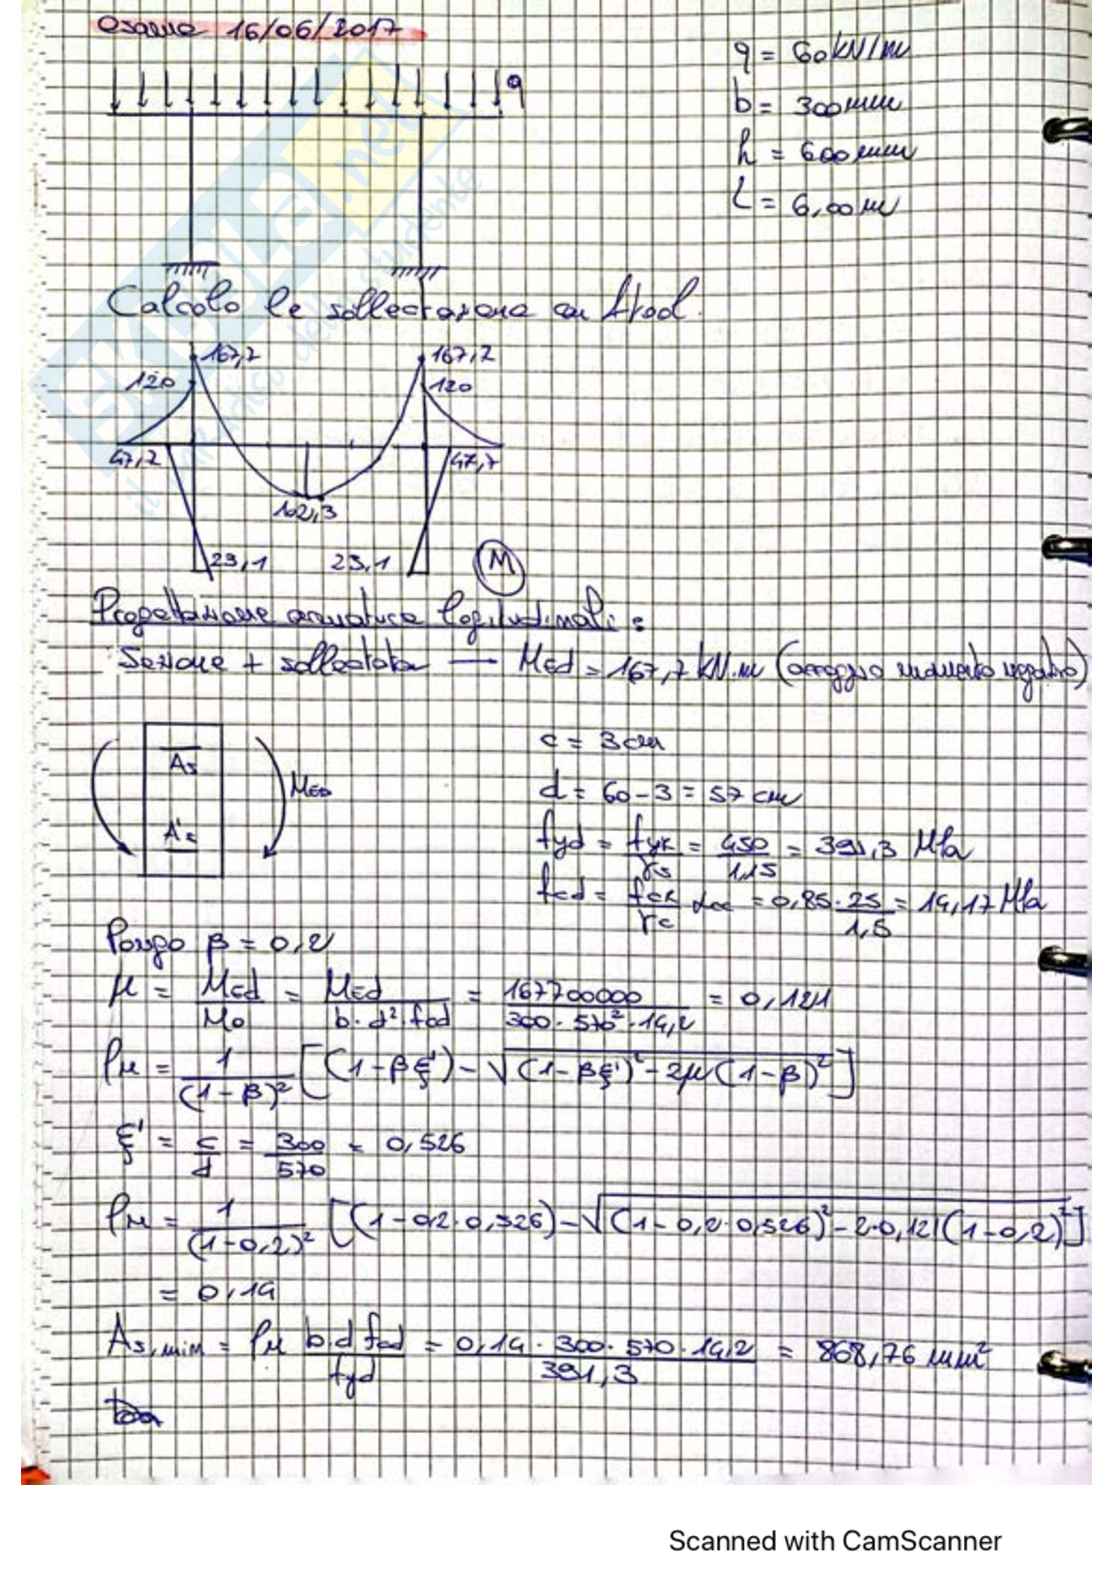 esame 16/06/2017
q
q = 60 kN/m
b = 300 mm
h = 600 mm
L = 6,00 m
Calcolo le sollecitazione con Ftool.
167,7
167,7
120
120
47,7
47,7
102,3
23,1
23,1
M
Progettazione armatura logitudinali:
Sezione + sollecitata — MEd = 167,7 kN·m (appoggio momento negativo)
As
A's
MED
c = 3 cm
d = 60 - 3 = 57 cm
fyd = fyk/γs = 450/1,15 = 391,3 MPa
fcd = fck/γc αcc = 0,85 · 25/1,5 = 14,17 MPa
Pongo β = 0,2
μ = MEd/Mo = MEd/(b·d²·fcd) = 167700000/(300·570²·14,2) = 0,121
ρμ = 1/(1-β)² [(1-βξ') - √((1-βξ')² - 2μ(1-β)²)]
ξ' = c/d = 300/570 = 0,526
ρμ = 1/(1-0,2)² [(1-0,2·0,526) - √((1-0,2·0,526)² - 2·0,121(1-0,2)²)]
= 0,14
As,min = ρμ b·d fcd/fyd = 0,14 · 300 · 570 · 14,2/391,3 = 868,76 mm²
Scanned with CamScanner